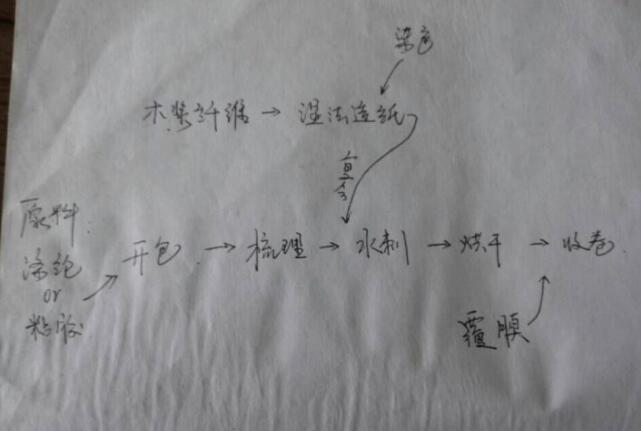 染色
木浆纤维 → 湿法造纸
复合
原料:
涤纶
or
粘胶
开包 → 梳理 → 水刺 → 烘干 → 收卷
覆膜